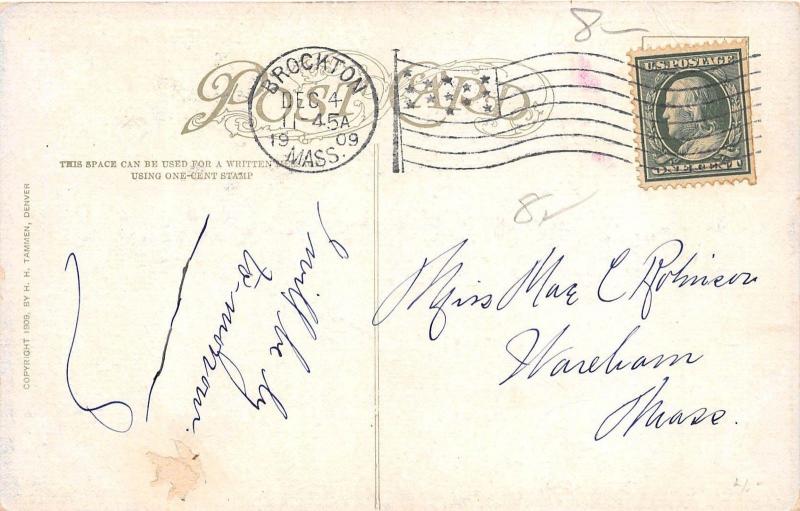 POST CARD
BROCKTON
DEC 4
11 45A
1909
MASS.
U.S. POSTAGE
ONE CENT
THIS SPACE CAN BE USED FOR A WRITTEN
USING ONE-CENT STAMP
COPYRIGHT 1909, BY H. H. TAMMEN, DENVER
I will be by
to-morrow.
Miss Mae C Robinson
Wareham
Mass.